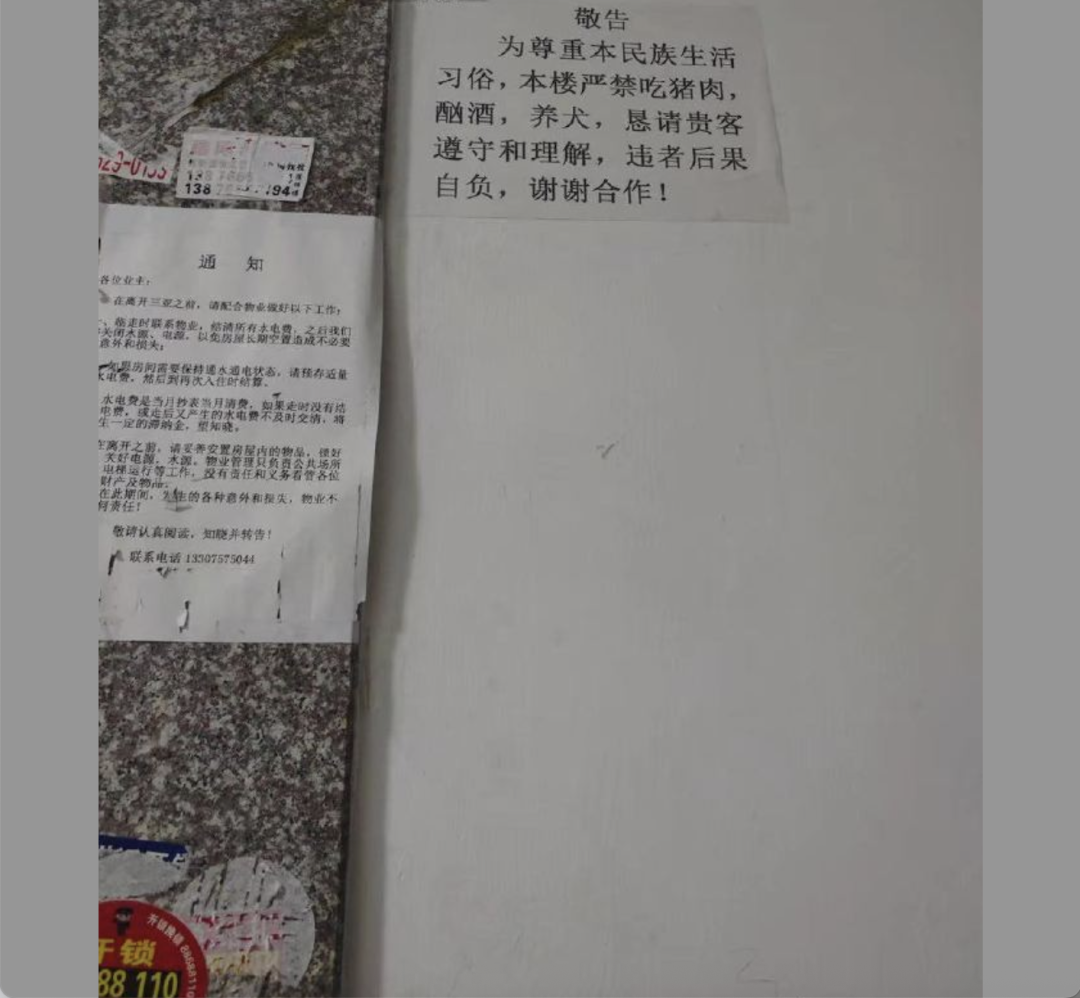 敬告
为尊重本民族生活
习俗，本楼严禁吃猪肉，
酗酒，养犬，恳请贵客
遵守和理解，违者后果
自负，谢谢合作！
通 知
各位业主：
在离开三亚之前，请配合物业做好以下工作；
、临走时联系物业，结清所有水电费，之后我们
关闭水源、电源，以免房屋长期空置造成不必要
意外和损失；
如果房间需要保持通水通电状态，请预存适量
水电费，然后到再次入住时结算。
水电费是当月抄表当月清费，如果走时没有结
电费，或走后又产生的水电费不及时交清，将
生一定的滞纳金，望知晓。
在离开之前，请妥善安置房屋内的物品，很好
关好电源、水源。物业管理只负责公共场所
电梯运行等工作，没有责任和义务看管各位
财产及物品。
在此期间，生的各种意外和损失，物业不
何责任！
敬请认真阅读，知晓并转告！
联系电话 13307575044
开锁换锁
开锁
88 110